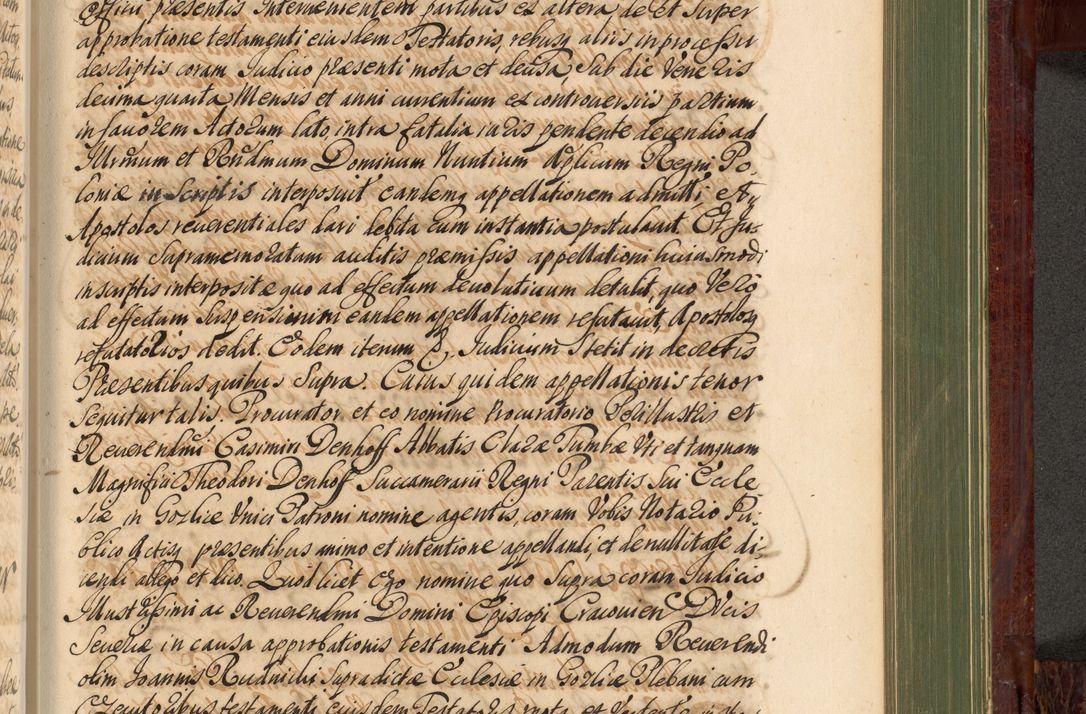 Officij præsentis Intervenientem partibus ex altera de et super
approbatione testamenti eiusdem Testatoris, rebusq alijs in processu
descriptis coram Judicio præsenti mota et decisa, Sub die Veneris
decima quarta Mensis et anni currentium ex controversijs partium
in favorem Actorum lato, intra fatalia iuris pendente decendio ad
Illrmum et Rndmum Dominum Nuntium Aplicum Regni Po-
loniæ in Scriptis interposuit eandemq appellationem admitti, et
Apostolos reverentiales dari debita cum instantia postulavit. Et Ju-
dicium Supramemoratum auditis præmissis appellationi huiusmodi
in scriptis interpositæ quo ad effectum devolutivum detulit, quo vero
ad effectum Suspensivum eandem appellationem refutavit, Apostolosq
refutatorios dedit. Eodem iterum Judicium Stetit in decretis
Præsentibus quibus Supra. Cuius quidem appellationis tenor
Sequitur talis. Procurator et eo nomine Procuratorio et
Reverendmi Casimiri Denhoff Abbatis Claræ Tumbæ Vti et tanquam
Magnifici Theodori Denhoff Succamerarij Regni Parentis Sui Eccle
siæ in Gorlice Vnici Patroni nomine agentis, coram Vobis Notario Pu-
blico Actisq præsentibus animo et intentione appellandi, et de nullitate di-
cendi allego et dico. Quod licet Ego nomine quo Supra coram Judicio
Illustrissimi ac Reverendmi Domini Episcopi Cracovien Ducis
Severiæ in causa approbationis testamenti Admodum Reverendi
olim Joannis Rudnicki Supradictæ Ecclesiæ in Gorlice Plebani cum
Exequutoribus testamenti eiusdem Testatoris mota et